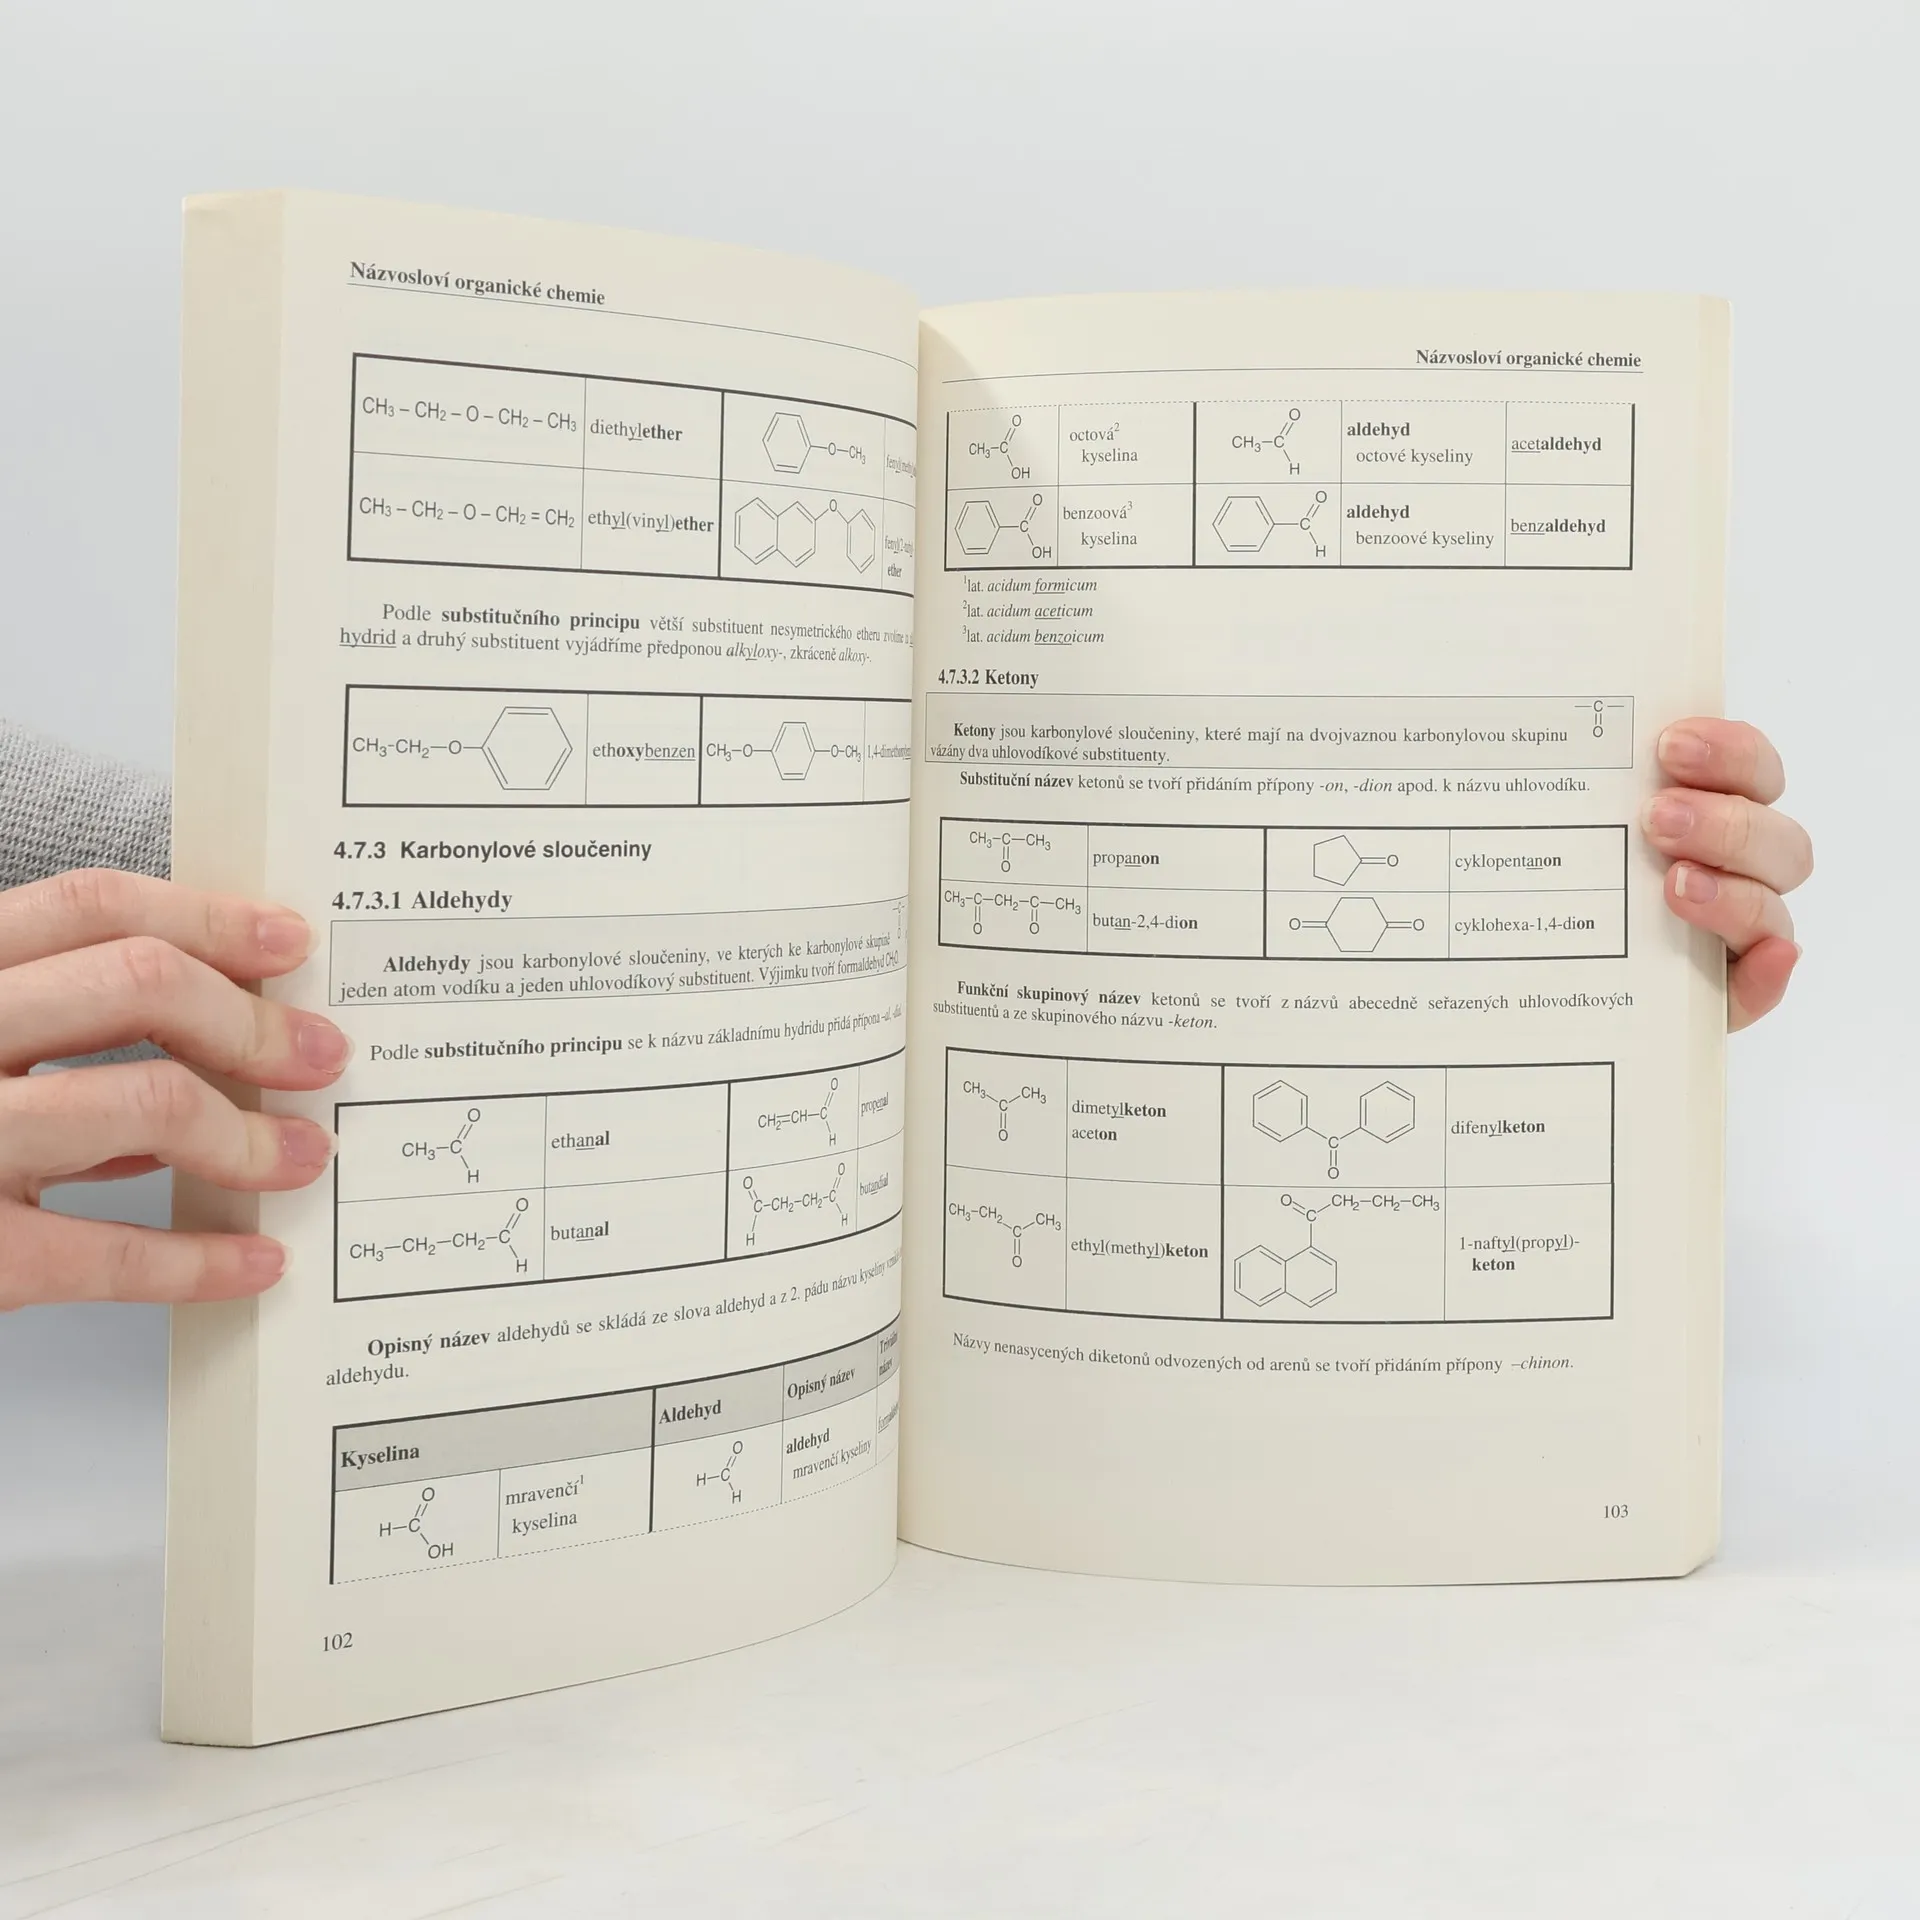 Názvosloví organické chemie
CH₃ – CH₂ – O – CH₂ – CH₃ diethylether O–CH₃
CH₃ – CH₂ – O – CH₂ = CH₂ ethyl(vinyl)ether O
ether
Podle substitučního principu větší substituent nesymetrického etheru zvolíme
hydrid a druhý substituent vyjádříme předponou alkyloxy-, zkráceně alkoxy-.
CH₃-CH₂–O– ethoxybenzen CH₃–O– –O–CH₃
4.7.3 Karbonylové sloučeniny
4.7.3.1 Aldehydy
–C–
O
Aldehydy jsou karbonylové sloučeniny, ve kterých ke karbonylové skupině
jeden atom vodíku a jeden uhlovodíkový substituent. Výjimku tvoří formaldehyd CH₂O.
Podle substitučního principu se k názvu základnímu hydridu přidá přípona -al,
CH₃–C O H ethanal CH₂=CH–C O H propenal
CH₃–CH₂–CH₂–C O H butanal O C–CH₂–CH₂–C O H H butandial
Opisný název aldehydů se skládá ze slova aldehyd a z 2. pádu názvu kyseliny
aldehydu.
Kyselina Aldehyd Opisný název Triviální název
H–C O OH mravenčí¹ kyselina H–C O H aldehyd mravenčí kyseliny
102
Názvosloví organické chemie
CH₃–C O OH octová² kyselina CH₃–C O H aldehyd octové kyseliny acetaldehyd
C O OH benzoová³ kyselina C O H aldehyd benzoové kyseliny benzaldehyd
¹lat. acidum formicum
²lat. acidum aceticum
³lat. acidum benzoicum
4.7.3.2 Ketony
–C–
O
Ketony jsou karbonylové sloučeniny, které mají na dvojvaznou karbonylovou skupinu
vázány dva uhlovodíkové substituenty.
Substituční název ketonů se tvoří přidáním přípony -on, -dion apod. k názvu uhlovodíku.
CH₃–C–CH₃ O propanon =O cyklopentanon
CH₃–C–CH₂–C–CH₃ O O butan-2,4-dion O= =O cyklohexa-1,4-dion
Funkční skupinový název ketonů se tvoří z názvů abecedně seřazených uhlovodíkových
substituentů a ze skupinového názvu -keton.
CH₃ C CH₃ O dimetylketon aceton C O difenylketon
CH₃–CH₂ C CH₃ O ethyl(methyl)keton O C CH₂–CH₂–CH₃ 1-naftyl(propyl)-
keton
Názvy nenasycených diketonů odvozených od arenů se tvoří přidáním přípony –chinon.
103